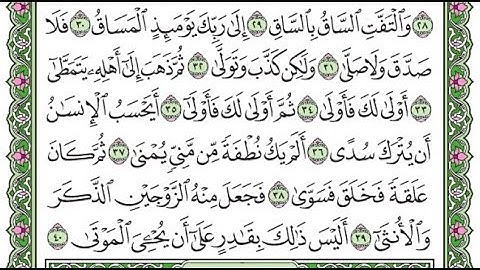 ٢٨ وَٱلۡتَفَّتِ ٱلسَّاقُ بِٱلسَّاقِ ٢٩ إِلَىٰ رَبِّكَ يَوۡمَئِذٍ ٱلۡمَسَاقُ ٣٠ فَلَا
صَدَّقَ وَلَا صَلَّىٰ ٣١ وَلَٰكِن كَذَّبَ وَتَوَلَّىٰ ٣٢ ثُمَّ ذَهَبَ إِلَىٰٓ أَهۡلِهِۦ يَتَمَطَّىٰٓ
٣٣ أَوۡلَىٰ لَكَ فَأَوۡلَىٰ ٣٤ ثُمَّ أَوۡلَىٰ لَكَ فَأَوۡلَىٰٓ ٣٥ أَيَحۡسَبُ ٱلۡإِنسَٰنُ
أَن يُتۡرَكَ سُدًى ٣٦ أَلَمۡ يَكُ نُطۡفَةٗ مِّن مَّنِيّٖ يُمۡنَىٰ ٣٧ ثُمَّ كَانَ
عَلَقَةٗ فَخَلَقَ فَسَوَّىٰ ٣٨ فَجَعَلَ مِنۡهُ ٱلزَّوۡجَيۡنِ ٱلذَّكَرَ
وَٱلۡأُنثَىٰٓ ٣٩ أَلَيۡسَ ذَٰلِكَ بِقَٰدِرٍ عَلَىٰٓ أَن يُحۡـِۧيَ ٱلۡمَوۡتَىٰ ٤٠